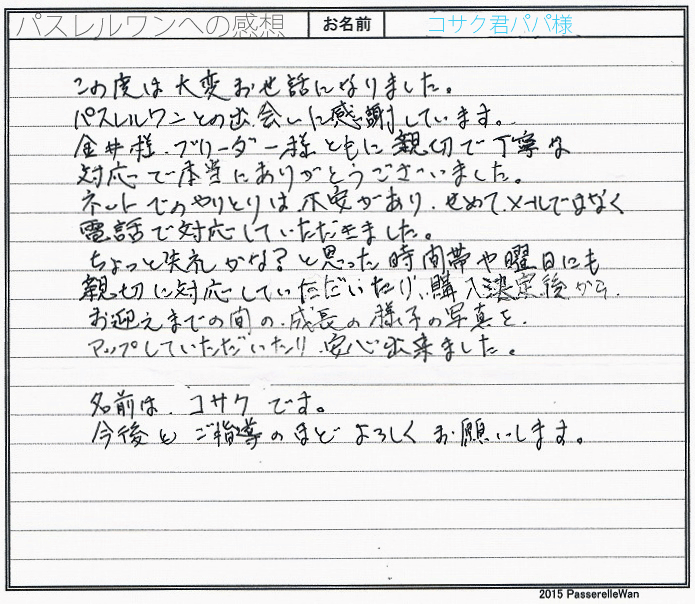 パスレルワンへの感想 お名前 コサク君パパ様
この度は大変お世話になりました。
パスレルワンとの出会いに感謝しています。
金井様、ブリーダー様ともに親切で丁寧な
対応で本当にありがとうございました。
ネットでのやりとりは不安があり、せめて、メールではなく
電話で対応していただきました。
ちょっと失礼かな?と思った時間帯や曜日にも
親切に対応していただいたり、購入決定後から、
お迎えまでの間の、成長の様子の写真を、
アップしていただいたり、安心出来ました。
名前は、コサクです。
今後もご指導のほどよろしくお願いします。
2015 PasserelleWan